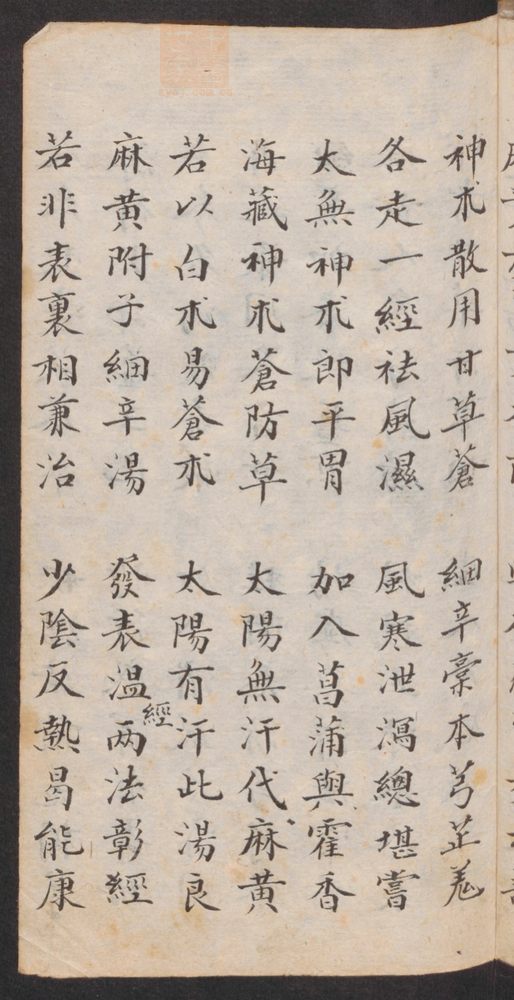 神朮散用甘草蒼　細辛藁本芎芷羗
各走一經祛風濕　風寒泄瀉總堪嘗
太無神朮即平胃　加入菖蒲與霍香
海藏神朮蒼防草　太陽無汗代麻黄
若以白朮易蒼朮　太陽有汗此湯良
麻黄附子細辛湯　發表温經两法彰經
若非表裏相兼治　少陰反熱曷能康